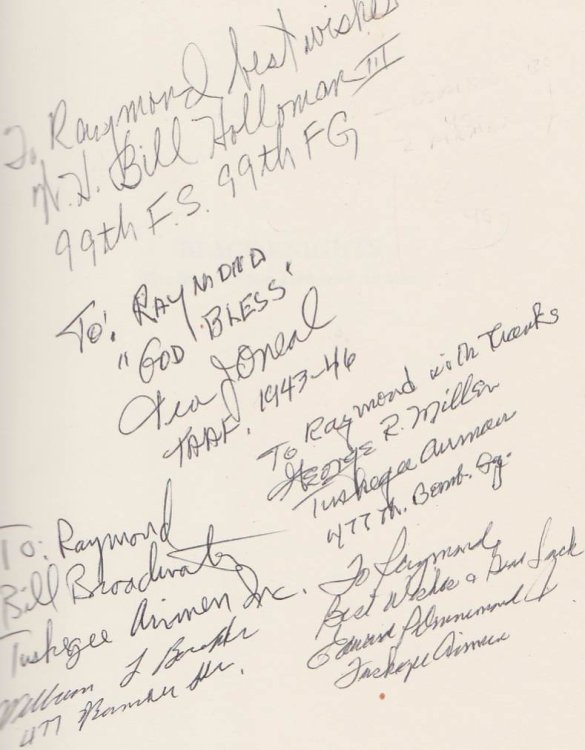 To Raymond best wishes
W. H. Bill Holloman III
99th F.S. 99th FG
To: RAYMOND
"GOD BLESS"
Ira J. O'Neal
TAAF. 1943-46
To Raymond with Thanks
George R. Miller
Tuskegee Airmen
477th. Bomb. Sq.
To: Raymond
Bill Broadwater
Tuskegee Airmen Inc.
William L
477 Bomber
To Raymond,
Best Wishes & Good Luck
Edward P. Drummond Jr
Tuskegee Airmen